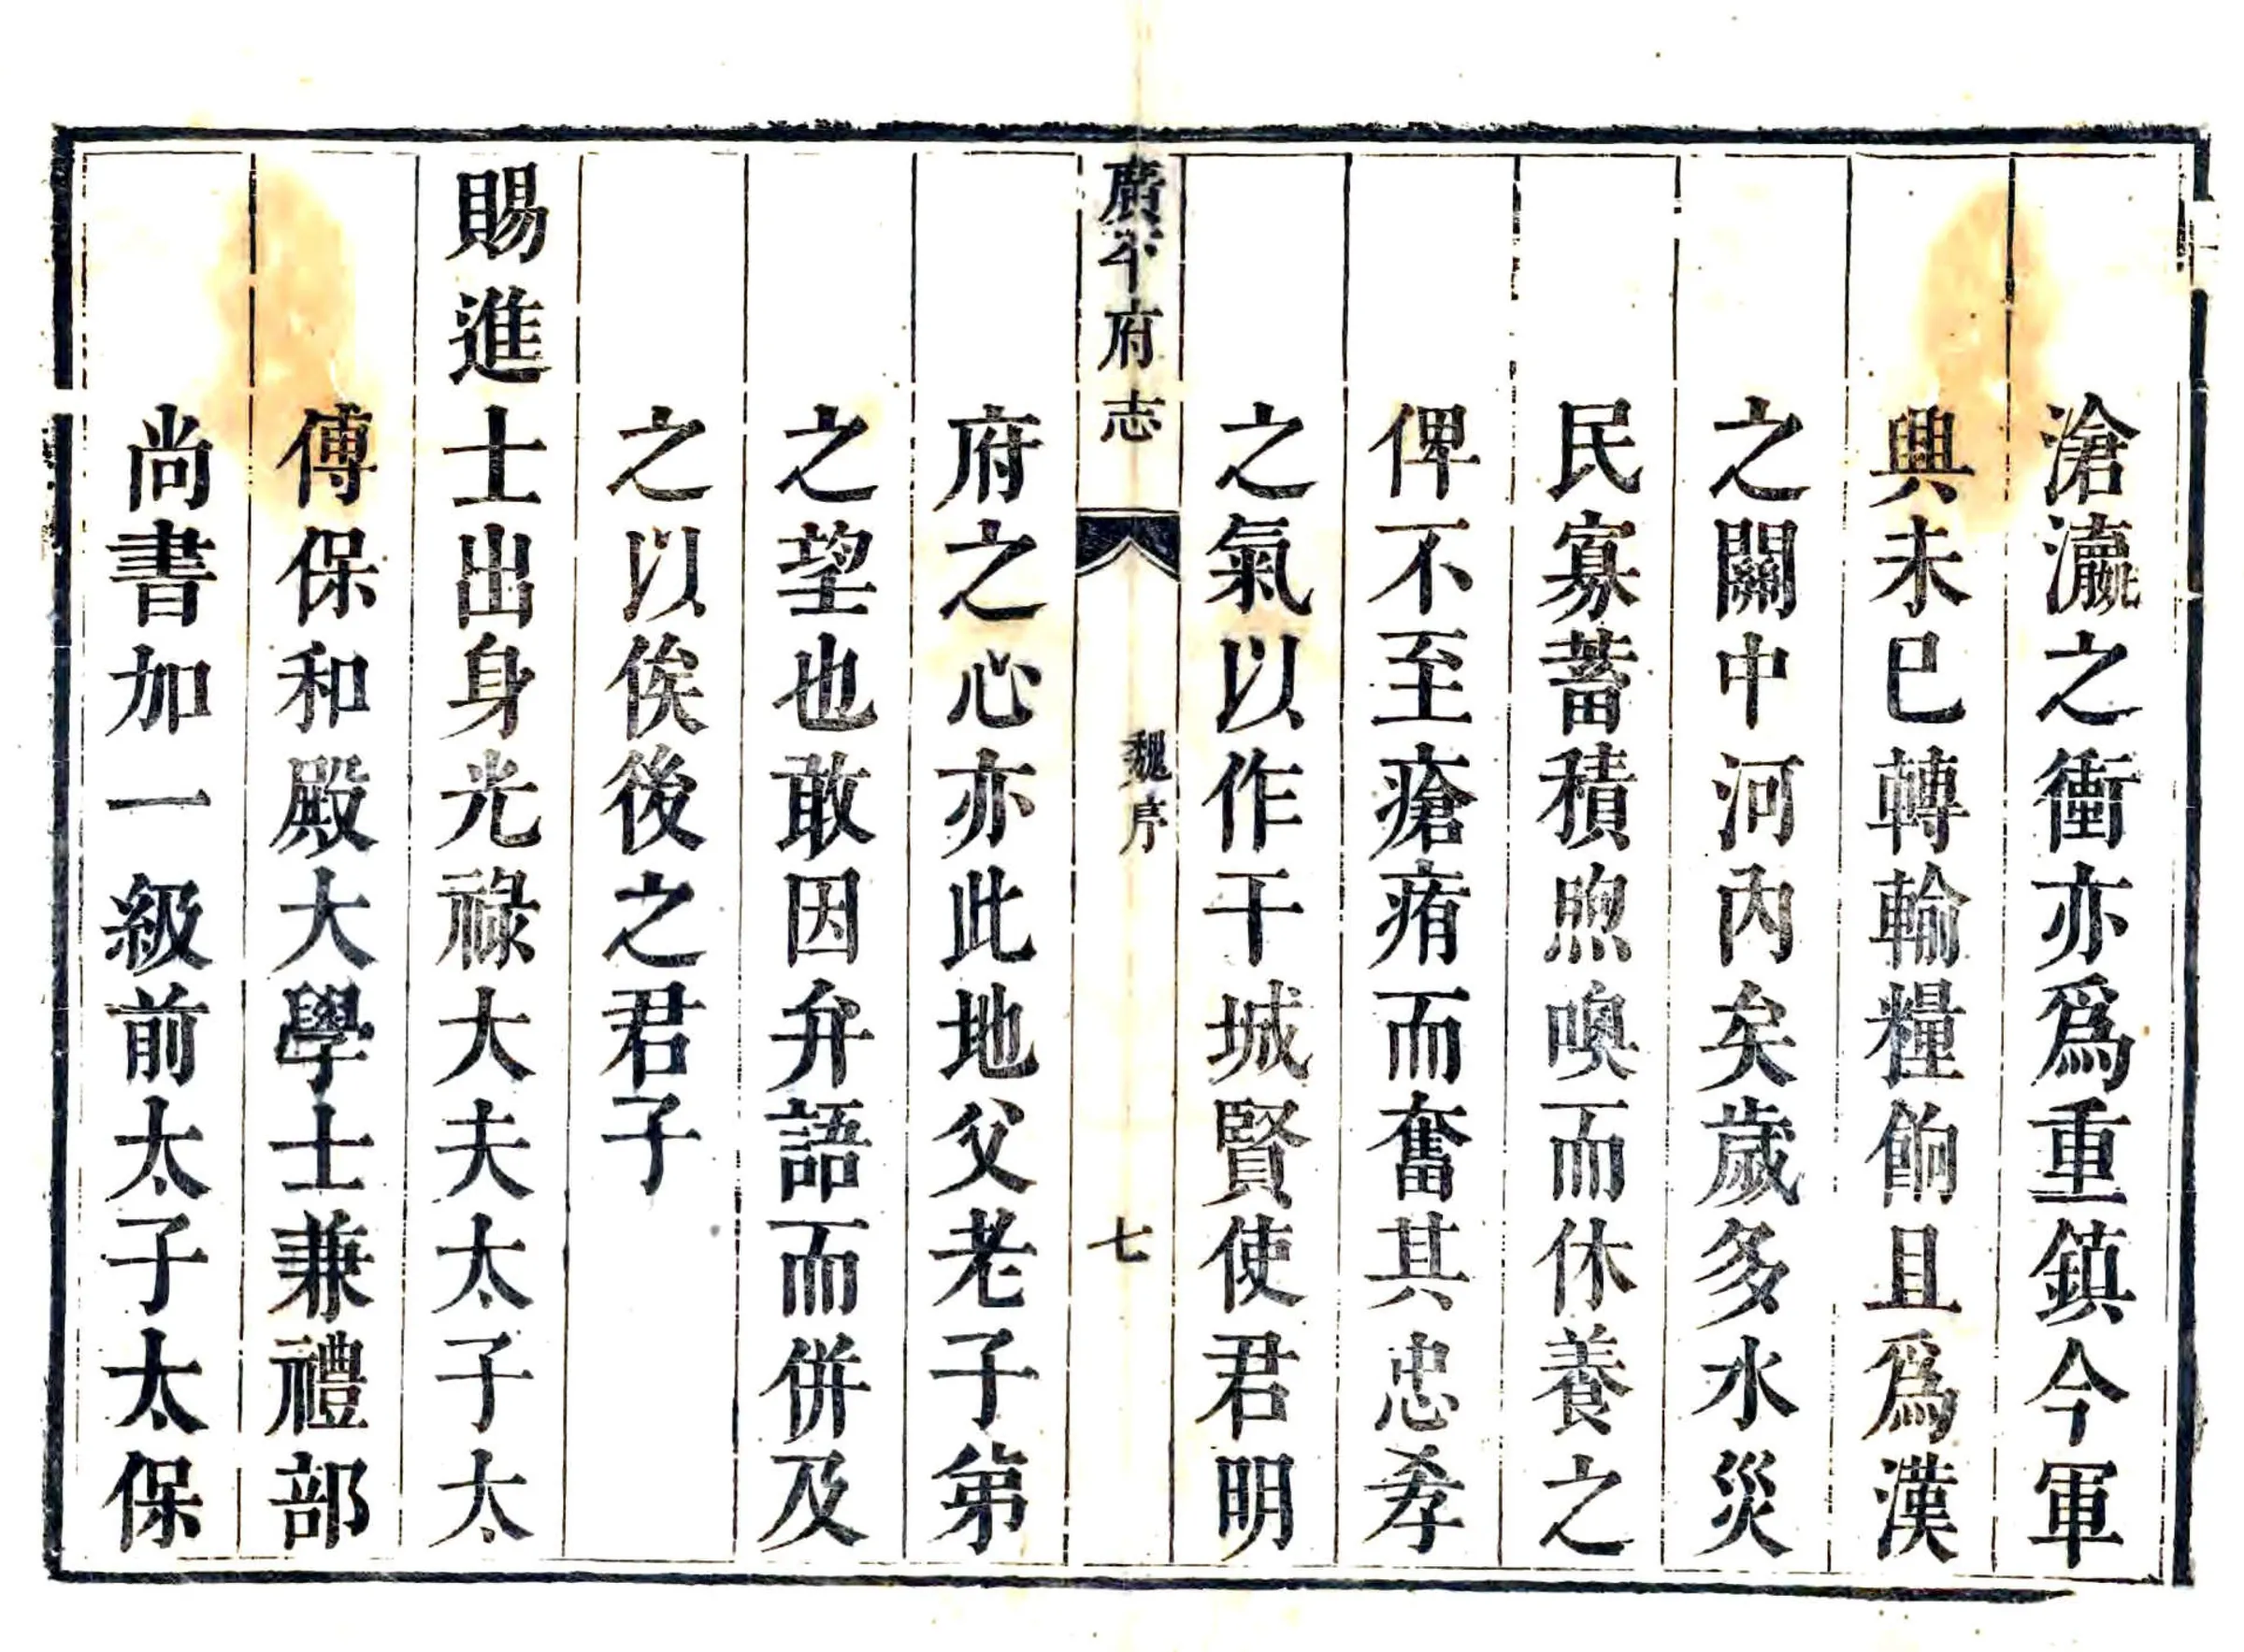 滄瀛之衝亦爲重鎮今軍
興未巳轉輸糧餉且爲漢
之關中河內矣歲多水災
民寡蓄積煦噢而休養之
俾不至瘡痏而奮其忠孝
之氣以作干城賢使君明
廣平府志
魏序
七
府之心亦此地父老子弟
之望也敢因弁語而併及
之以俟後之君子
賜進士出身光祿大夫太子太
傅保和殿大學士兼禮部
尚書加一級前太子太保